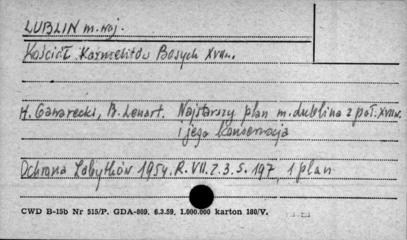 LUBLIN m. woj.
Kościół Karmelitów Bosych XVIIw.
H. Gawarecki, B. Lenart. Najstarszy plan m. Lublina z poł. XVIIw.
i jego konserwacja
Ochrona Zabytków 1954. R. VII. Z. 3. S. 197, 1 plan
CWD B-15b Nr 515/P. GDA-809. 6.3.59. 1.000.000 karton 180/V.